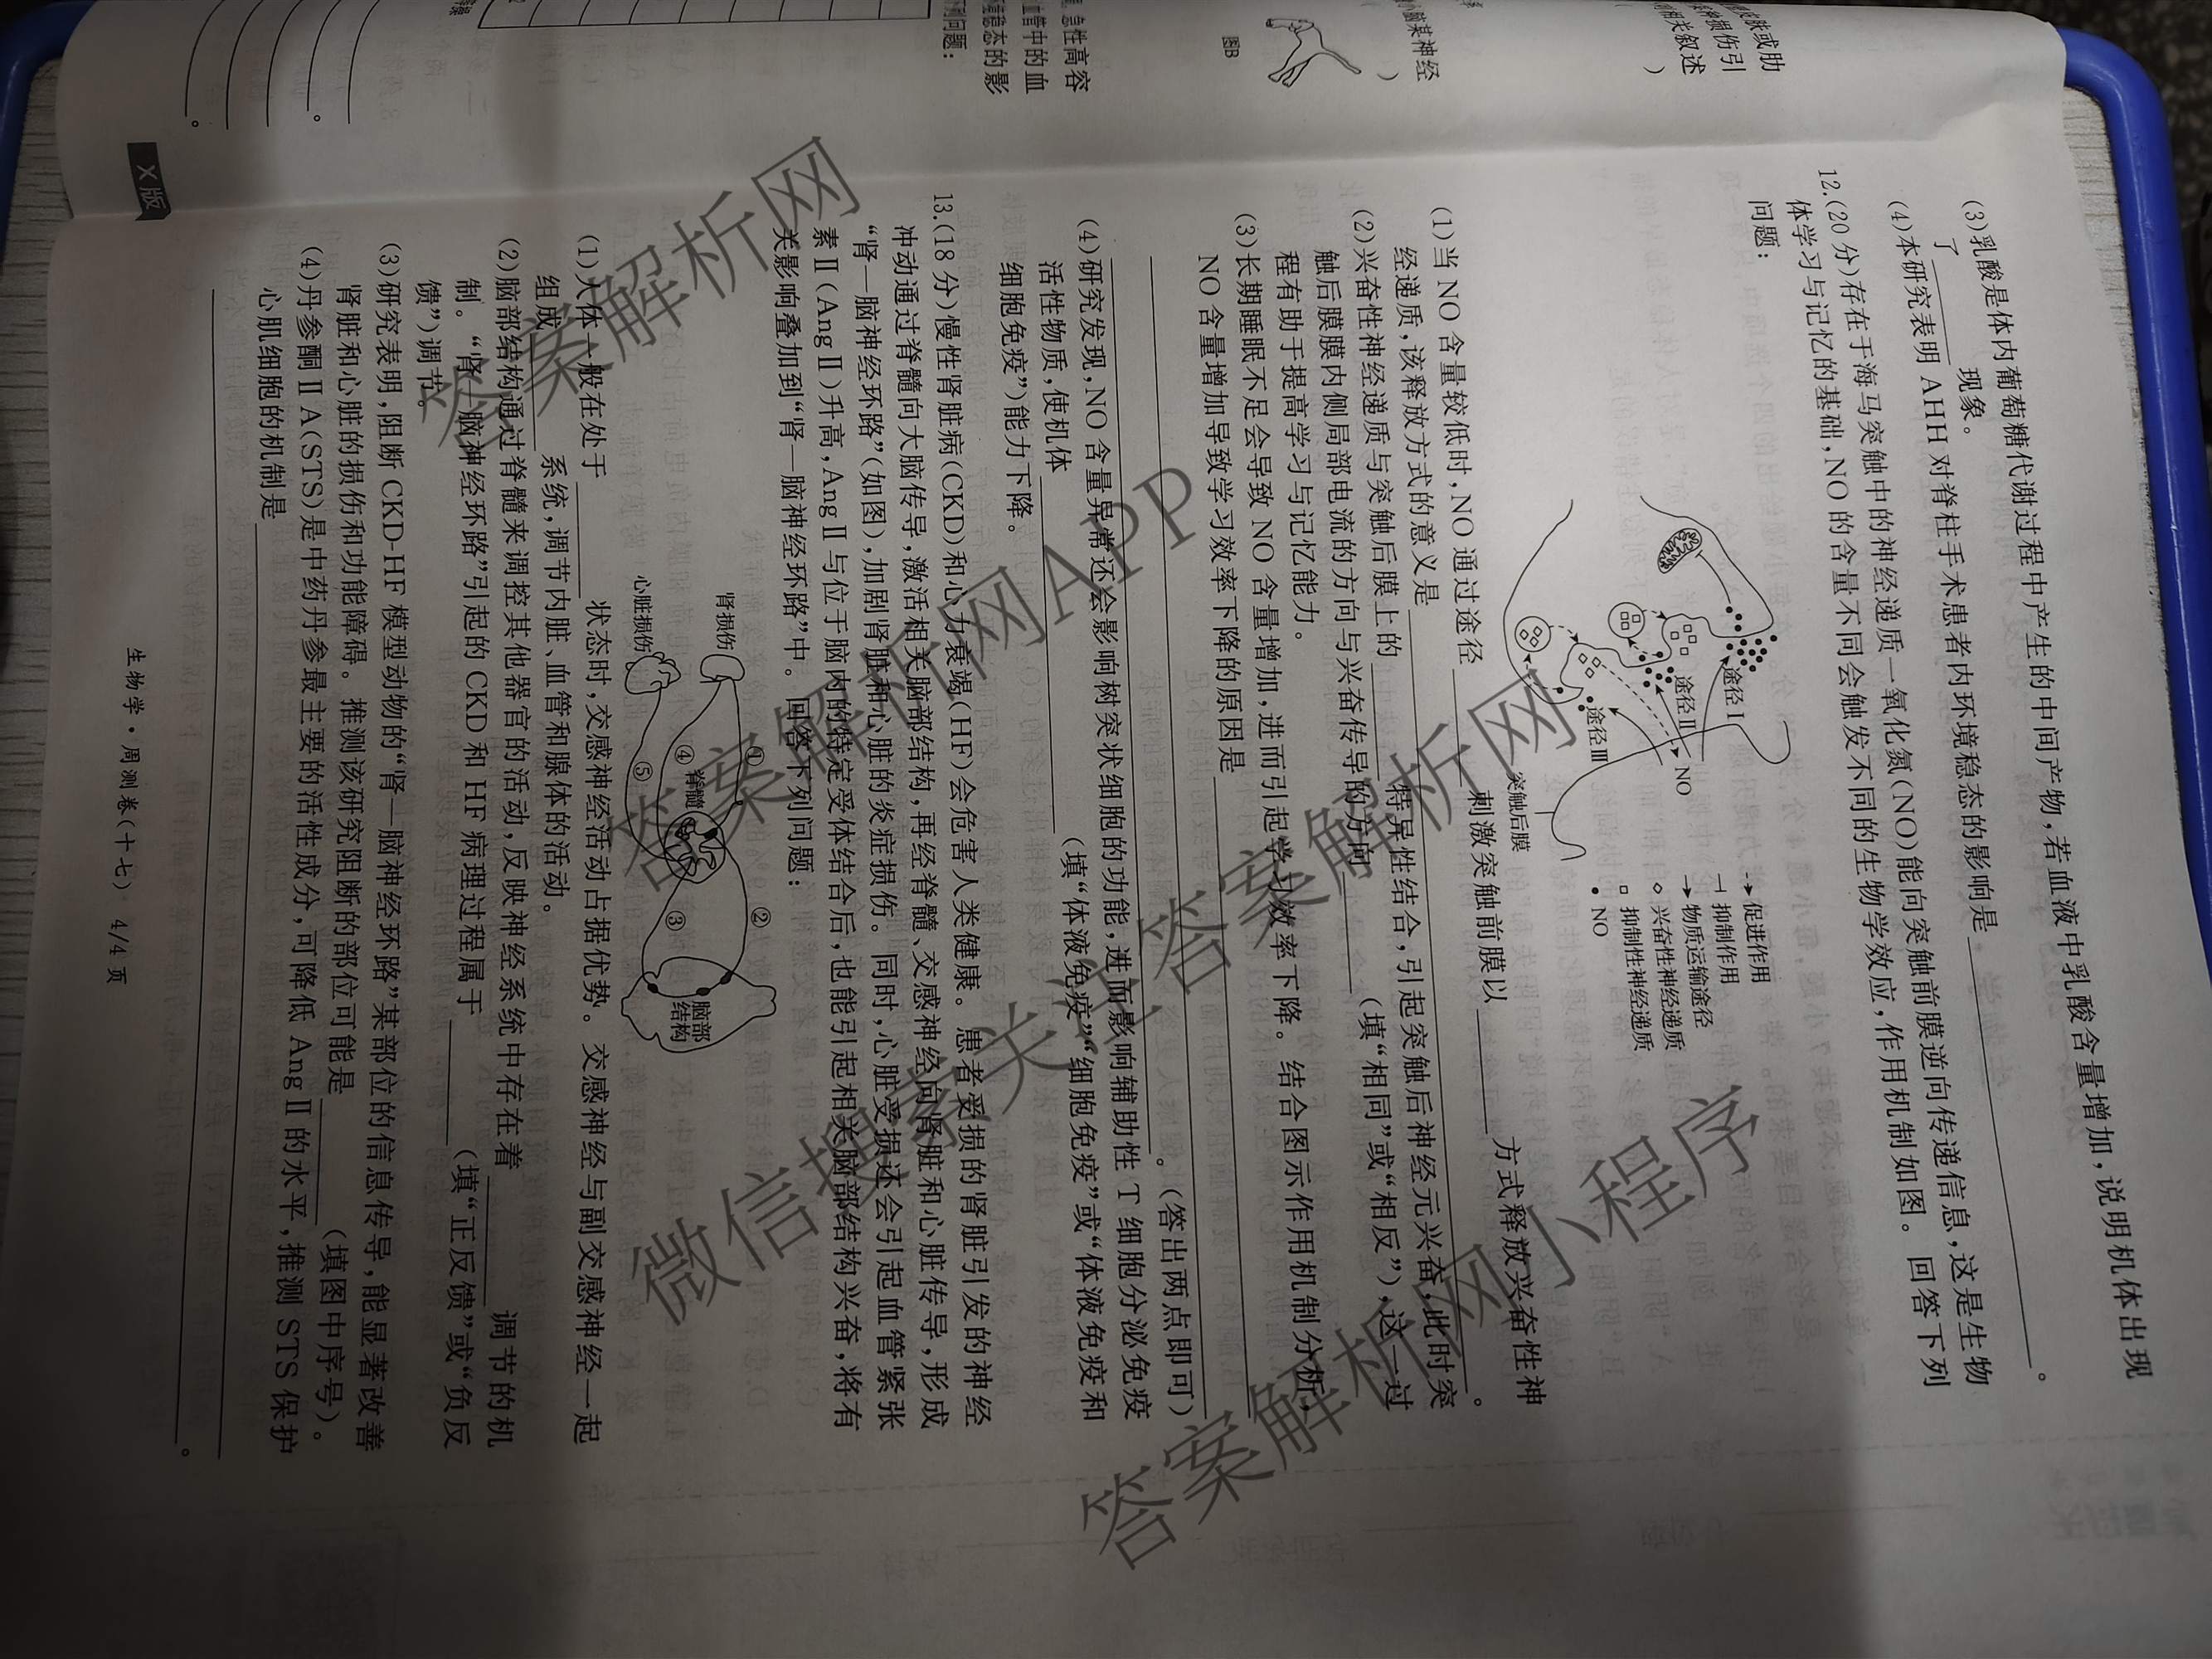 (3)乳酸是体内葡萄糖代谢过程中产生的中间产物,若血液中乳酸含量增加,说明机体出现
了 现象。
(4)本研究表明 AHH 对脊柱手术患者内环境稳态的影响是
。
12.(20 分)存在于海马突触中的神经递质一氧化氮(NO)能向突触前膜逆向传递信息,这是生物
体学习与记忆的基础,NO 的含量不同会触发不同的生物学效应,作用机制如图。回答下列
问题:
途径Ⅰ
途径Ⅱ
途径Ⅲ
NO
突触后膜
促进作用
抑制作用
物质运输途径
兴奋性神经递质
抑制性神经递质
NO
(1)当 NO 含量较低时,NO 通过途径 刺激突触前膜以 方式释放兴奋性神
经递质,该释放方式的意义是 。
(2)兴奋性神经递质与突触后膜上的 特异性结合,引起突触后神经元兴奋,此时突
触后膜膜内侧局部电流的方向与兴奋传导的方向 (填“相同”或“相反”),这一过
程有助于提高学习与记忆能力。
(3)长期睡眠不足会导致 NO 含量增加,进而引起学习效率下降。结合图示作用机制分析,
NO 含量增加导致学习效率下降的原因是
。(答出两点即可)
(4)研究发现,NO 含量异常还会影响树突状细胞的功能,进而影响辅助性 T 细胞分泌免疫
活性物质,使机体 (填“体液免疫”“细胞免疫”或“体液免疫和
细胞免疫”)能力下降。
13.(18 分)慢性肾脏病(CKD)和心力衰竭(HF)会危害人类健康。患者受损的肾脏引发的神经
冲动通过脊髓向大脑传导,激活相关脑部结构,再经脊髓、交感神经向肾脏和心脏传导,形成
“肾—脑神经环路”(如图),加剧肾脏和心脏的炎症损伤。同时,心脏受损还会引起血管紧张
素Ⅱ(AngⅡ)升高,AngⅡ与位于脑内的特定受体结合后,也能引起相关脑部结构兴奋,将有
关影响叠加到“肾—脑神经环路”中。回答下列问题:
肾损伤
心脏损伤
①
②
③
④
⑤
脊髓
脑部
结构
(1)人体一般在处于 状态时,交感神经活动占据优势。交感神经与副交感神经一起
组成 系统,调节内脏、血管和腺体的活动。
(2)脑部结构通过脊髓来调控其他器官的活动,反映神经系统中存在着 调节的机
制。“肾—脑神经环路”引起的 CKD 和 HF 病理过程属于 (填“正反馈”或“负反
馈”)调节。
(3)研究表明,阻断 CKD-HF 模型动物的“肾—脑神经环路”某部位的信息传导,能显著改善
肾脏和心脏的损伤和功能障碍。推测该研究阻断的部位可能是 (填图中序号)。
(4)丹参酮ⅡA(STS)是中药丹参最主要的活性成分,可降低 AngⅡ的水平,推测 STS 保护
心肌细胞的机制是
。
生物学·周测卷(十七) 4/4 页
X 版
图B
小脑某神经
急性高容
血管中的血
稳态的影
列问题:
皮肤或肋
种损伤引
相关叙述
答案解析网
答案解析网APP
答案解析网
微信搜索关注答案解析网
答案解析网小程序